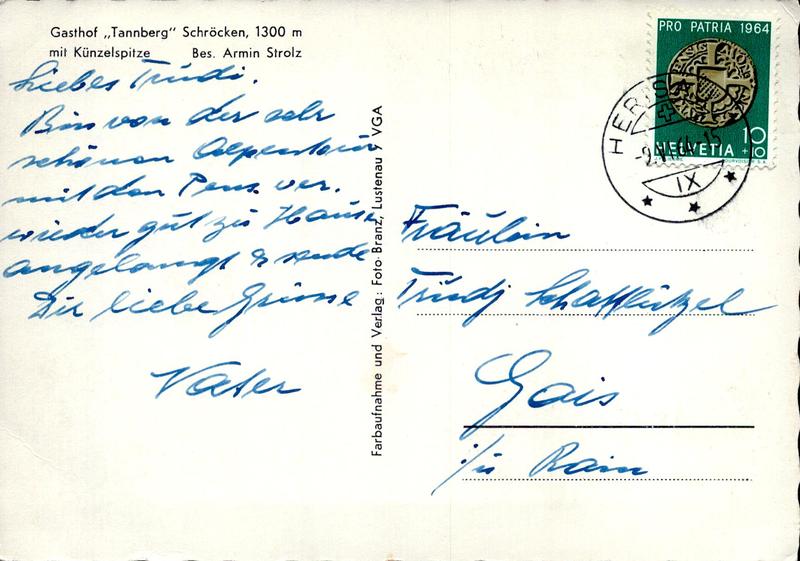 Gasthof „Tannberg" Schröcken, 1300 m
mit Künzelspitze Bes. Armin Strolz
Liebes Trudi.
Bin von der sehr
schönen Alpentour
mit dem Pens. ver.
wieder gut zu Hause
angelangt & sende
Dir liebe Grüsse
Vater
Farbaufnahme und Verlag: Foto-Branz, Lustenau / VGA
PRO PATRIA 1964
10
+10
HELVETIA
HERISAU
IX
Fräulein
Trudj Schafflützel
Gais
Rain